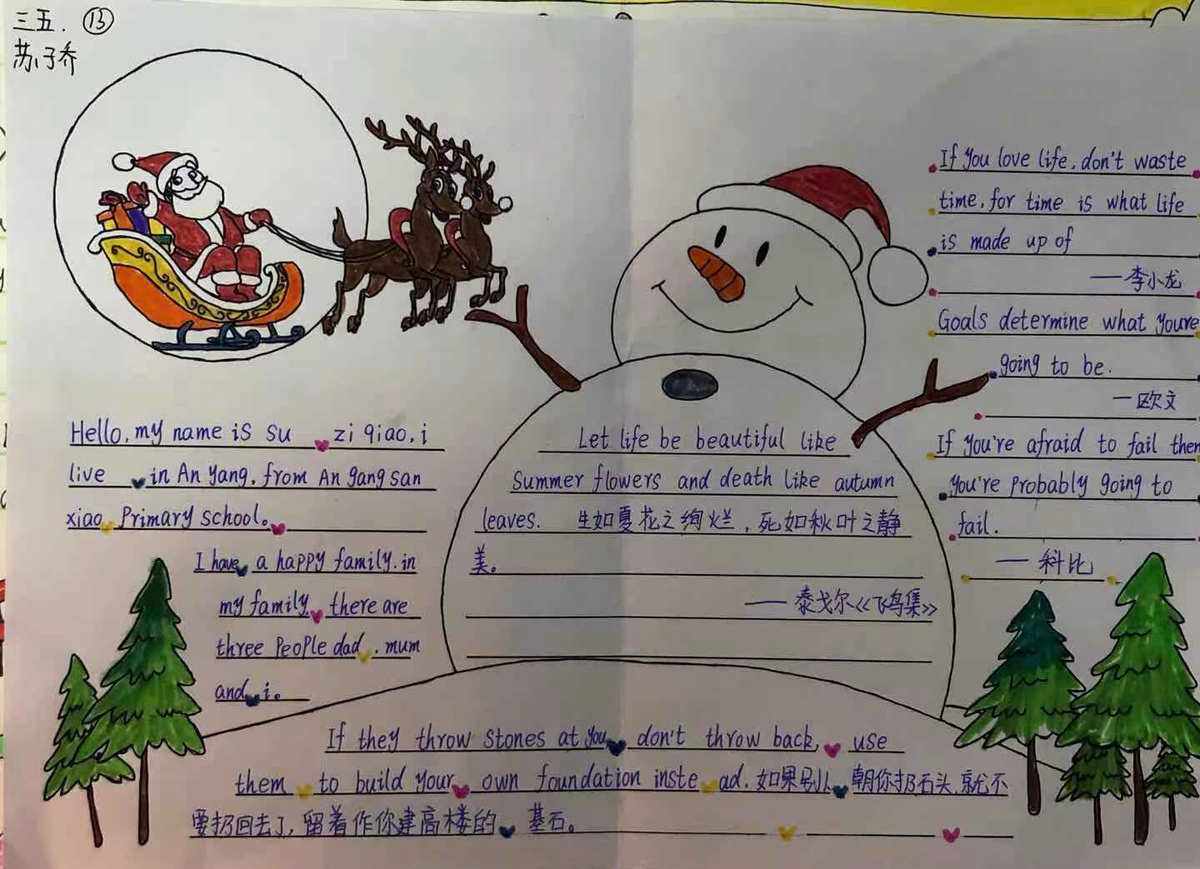 三五. ⑬
苏子乔
Hello, my name is su zi qiao, i
live in An yang, from An gang san
xiao Primary school。
I have a happy family. in
my family there are
three People dad , mum
and i。
Let life be beautiful like
Summer flowers and death like autumn
leaves. 生如夏花之绚烂，死如秋叶之静
美。
——泰戈尔《飞鸟集》
If you love life, don't waste
time, for time is what life
is made up of
—李小龙
Goals determine what youre
going to be.
—欧文
If you're afraid to fail then
you're probably going to
fail.
—科比
If they throw stones at you don't throw back, use
them to build your own foundation inste ad. 如果别人朝你扔石头，就不
要扔回去了，留着作你建高楼的 基石。